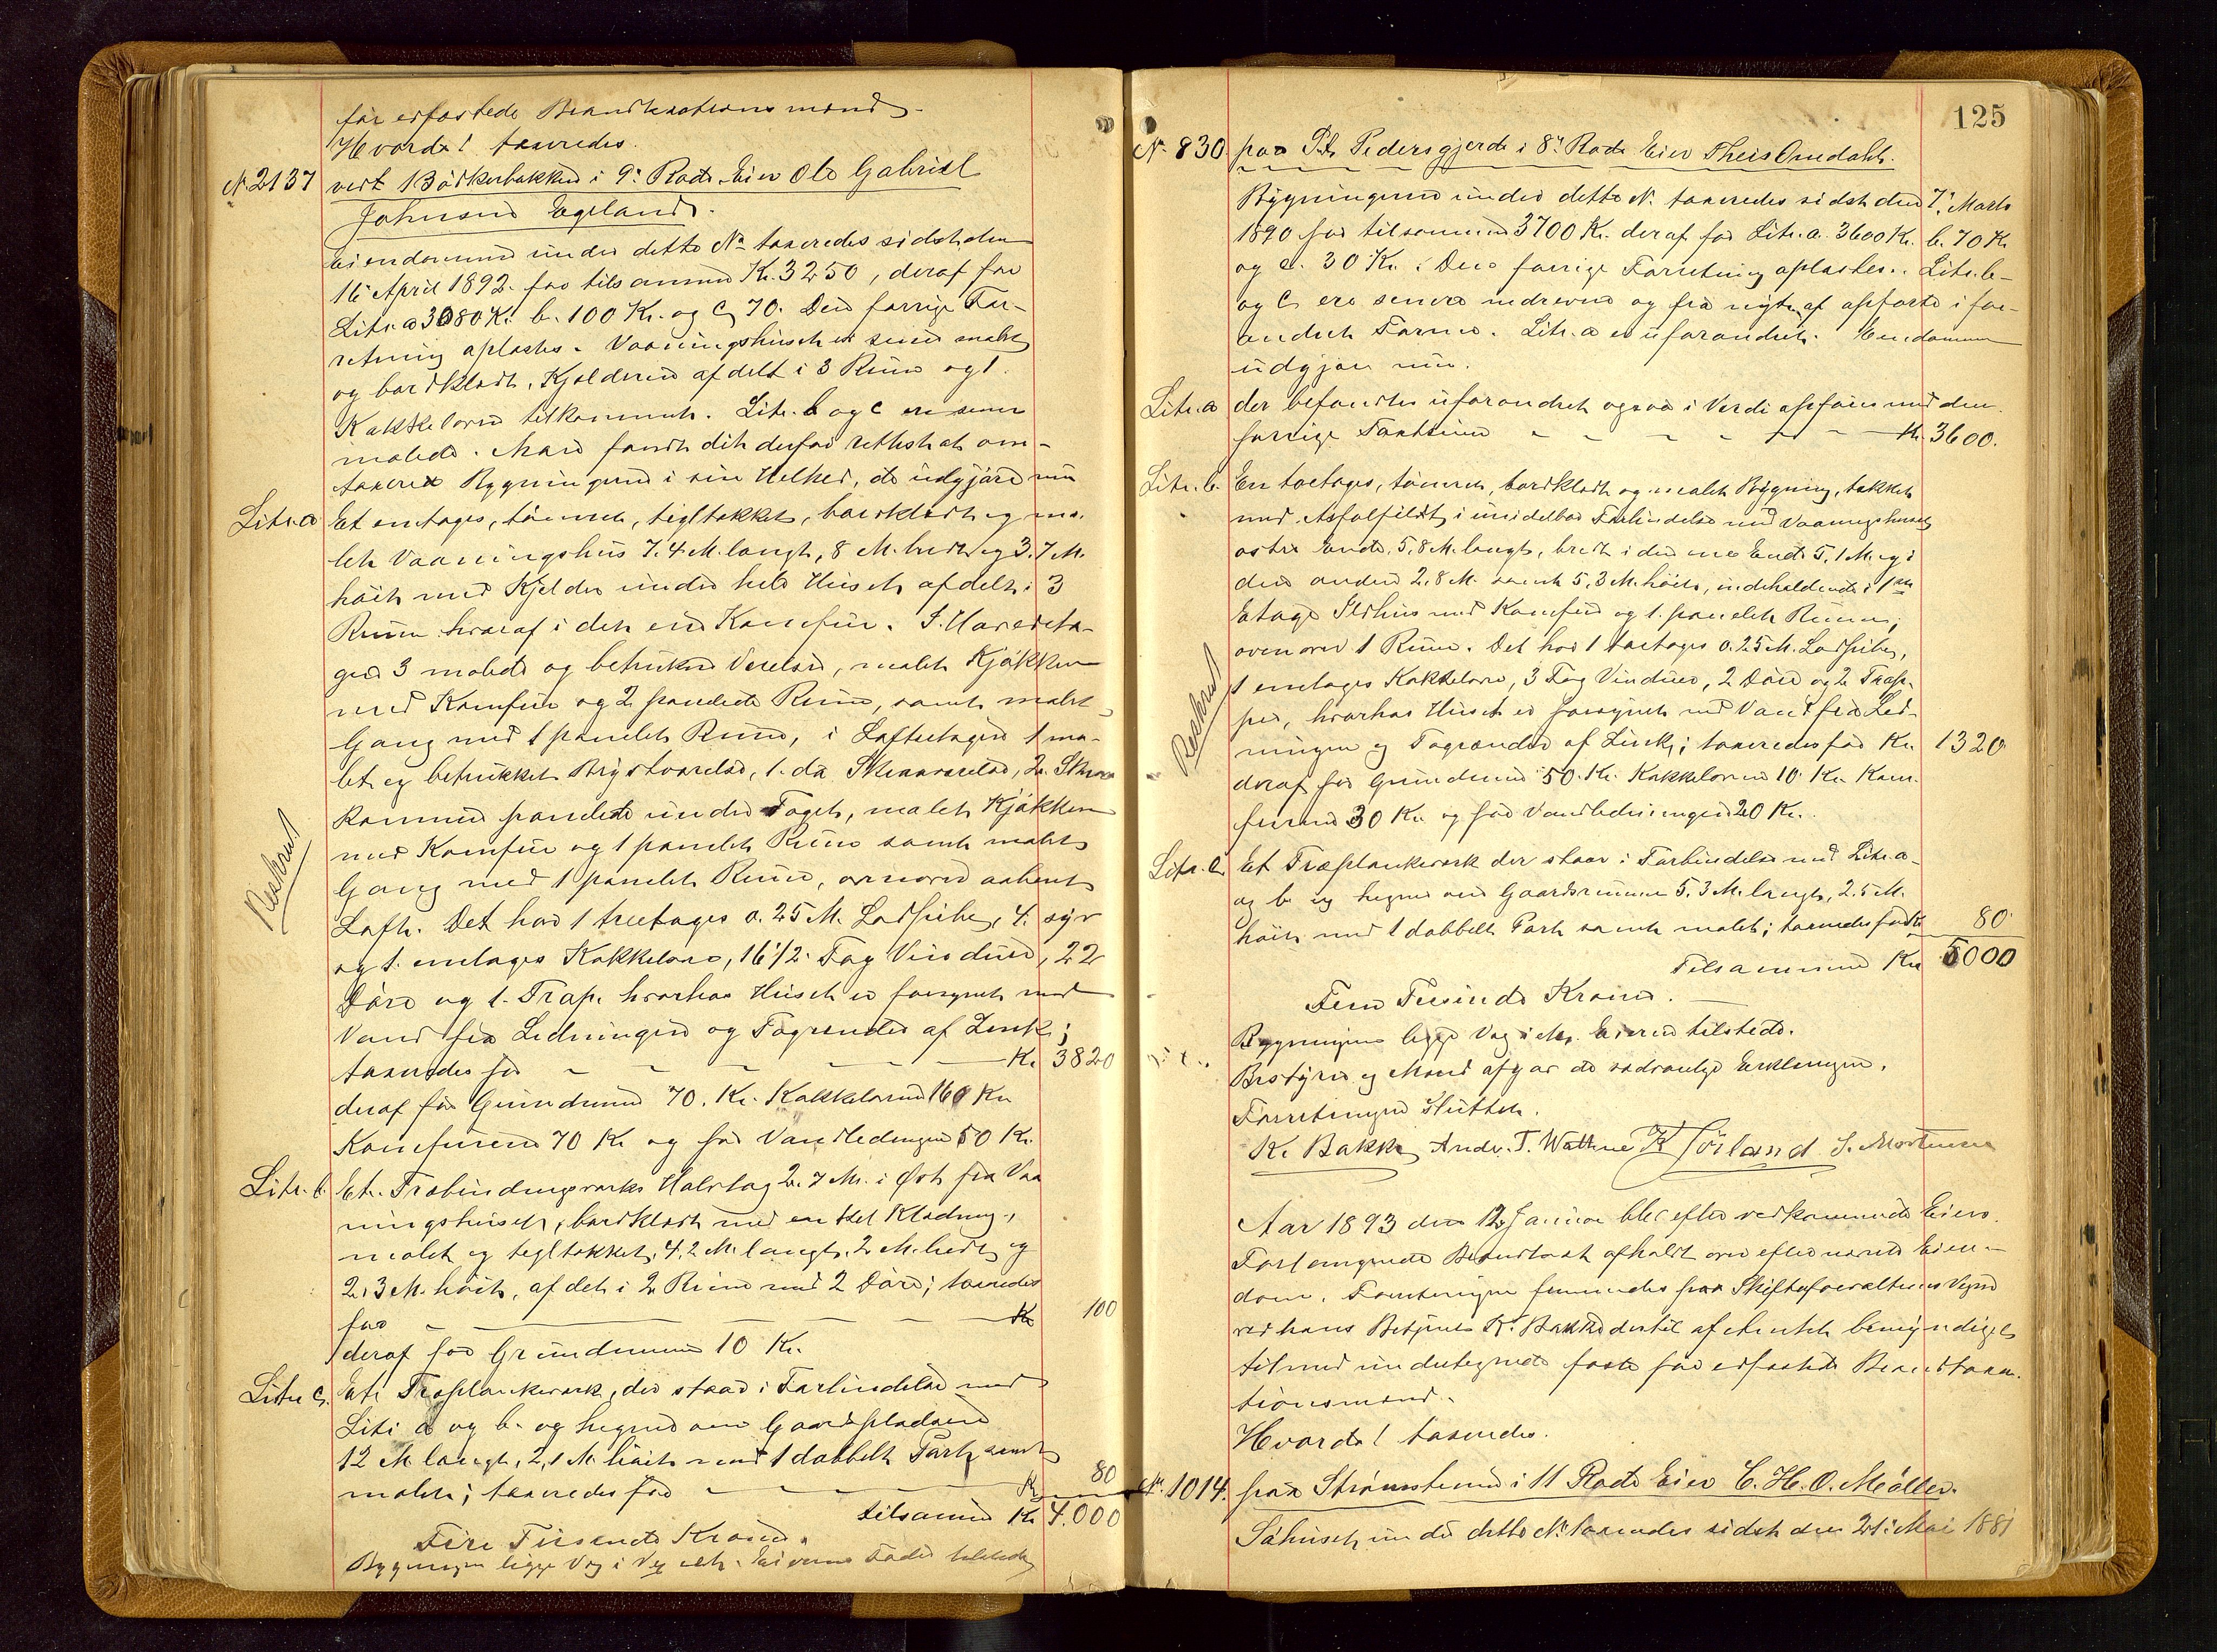 for erfastede Brandtaxtionsmænd
Hvorda! taxeredes.
No. 2137 vest Bödkerbakken i 9de Rode Eier Ole Gabriel
Johnsen Egeland.
Eiendommen under dette No. taxeredes sidst den
16 April 1892 for tilsammen Kr. 3250, deraf for
Litr. a 3080 Kr. b. 100 Kr. og C, 70. Den forrige For-
retning oplæstes. Vaaningshuset er senere malet
og bordklædt, Kjelderen afdelt i 3 Rum og 1
Kakkelovn tilkommet. Litr. b og c ere senere
malede. Man fandt det derfor rettest at om-
taxere Bygningerne i sin Helhed, de udgjöre nu
Litr. a Et enetages, tömret, tegltækket, bordklædt og ma-
let Vaaningshus 7.4 M. langt, 8 M. bredt og 3.7 M.
höit med Kjelder under hele Huset afdelt i 3
Rum hvoraf i det ene Komfur. I Hovedeta-
gen 3 malede og betrukne Værelser, malet Kjökken
med Komfur og 2 panelede Rum, samt malet
Gang med 1 panelet Rum, i Loftsetagen 1 ma-
let og betrukket Kvistværelse, 1 do Skraaværelse, 2 Skraa
Rommer panelede under Taget, malet Kjökken
med Komfur og 1 panelet Rum samt malet
Gang med 1 panelet Rum, ovenover aabent
Loft. Det har 1 treetages 0.25 M. Lodpibe, 4
og 1 enetages Kakkelovn, 16 1/2 Fag Vinduer, 22
Döre og 1 Trap. hvorhos Huset er forsynet med
Vand fra Ledningen og Tagrender af Zink;
taxeredes for - - - - - Kr. 3820
deraf for Grundmuren 70. Kr. Kakkelovnene 160 Kr.
Komfurene 70 Kr og for Vandledningen 50 Kr.
Litr. b. Et Træbindingsværks Halvtag 2.7 M. i Öst fra Vaa
ningshuset, bordklædt med enkel Klædning,
malet og tegltækket, 4.2 M. langt, 2 M. bredt og
2,3 M. höit, afdelt i 2 Rum med 2 Döre; taxeredes
for - - - - - Kr 100
deraf for Grundmuren 10 Kr.
Litr C. Et Træplankeværk, der staar i Forbindelse med
Litr a og b. og hegner om Gaardspladsen
12 M langt, 2,1 M höit med 1 dobbelt Port samt
malet; taxeredes for - - - Kr 80
tilsammen Kr 4.000
Fire Tusende Kroner.
Bygningen ligge Væg i Væg Eierens Fader tilstede
Reskrevet
125
No. 830 paa Pedersgjerde i 8de Rode Eier Theis Omdahl.
Bygningerne under dette No. taxeredes sidst den 7de Marts
1890 for tilsammen 3700 Kr. deraf for Litr. a. 3600 Kr. b. 70 Kr
og c. 30 Kr. Den forrige Forretning oplæstes. Litr. b
og C ere senere nedrevne og fra nyt af opförte i for-
andret Form. Litr. a er uforandret. Eiendommen
udgjör nu.
Litr. a der befandtes uforandret ogsaa i Verdi opföres med den
forrige Taxtsum - - - - - Kr. 3600.
Litr. b. En toetages, tömret, bordklædt og malet Bygning, tækket
med Asfaltfilt, i umidelbar Forbindelse med Vaaningshusets
östre Ende, 5,8 M. langt, bredt i den ene Ende 5,1 M. og i
den anden 2,8 M. samt 5,3 M. höit, indeholdende i 1ste
Etage Ildhus med Komfur og 1 panelet Rum,
ovenover 1 Rum. Det har 1 toetages 0.25 M. Lodpibe,
1 enetages Kakkelovn, 3 Fag Vinduer, 2 Döre og 2 Trap-
per, hvorhos Huset er forsynet med Vand fra Led-
ningen og Tagrender af Zink; taxeredes for Kr. 1320
deraf for Grundmuren 50. Kr. Kakkelovnen 10 Kr. Kom-
furen 30 Kr. og for Vandledningen 20 Kr.
Litr. C. Et Træplankeværk der staar i Forbindelse med Litr. a
og b og hegner om Gaardsrummet 5.3 M. langt, 2.5 M.
höit med 1 dobbelt Port samt malet; taxeredes for Kr 80
Tilsammen Kr. 5000
Fem Tusinde Kroner.
Bygningen ligge Væg i Væg. Eieren tilstede.
Bestyrer og Mænd afgav de sædvanlige Erklæringer.
Forretningen sluttet.
K. Bakke Andr. T. Wathne K Törland S. Mortensen
Reskrevet
Aar 1893 den 12 Januar blev efter vedkommende Eiers
Forlangende Brandtaxt afholdt over efternævnte Eien-
dom. Forretningen fremmedes paa Skiftsforvalterens Vegne
ved hans Betjent K. Bakke dertil af Amtet bemyndiget
tilmed undertegnede faste for erfastede Brandtaxa-
tionsmænd.
Hvorda! taxeredes.
No. 1014. paa Strömsteinen i 11 Rode Eier C. H. O. Möller.
Söhuset under dette No. taxeredes sidst den 21de Mai 1881